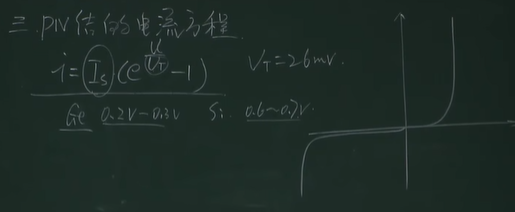 三.PN结的电流方程
i=Is(e^{U/U_T}-1) V_T=26mv.
Ge 0.2V-0.3v Si 0.6~0.7v.